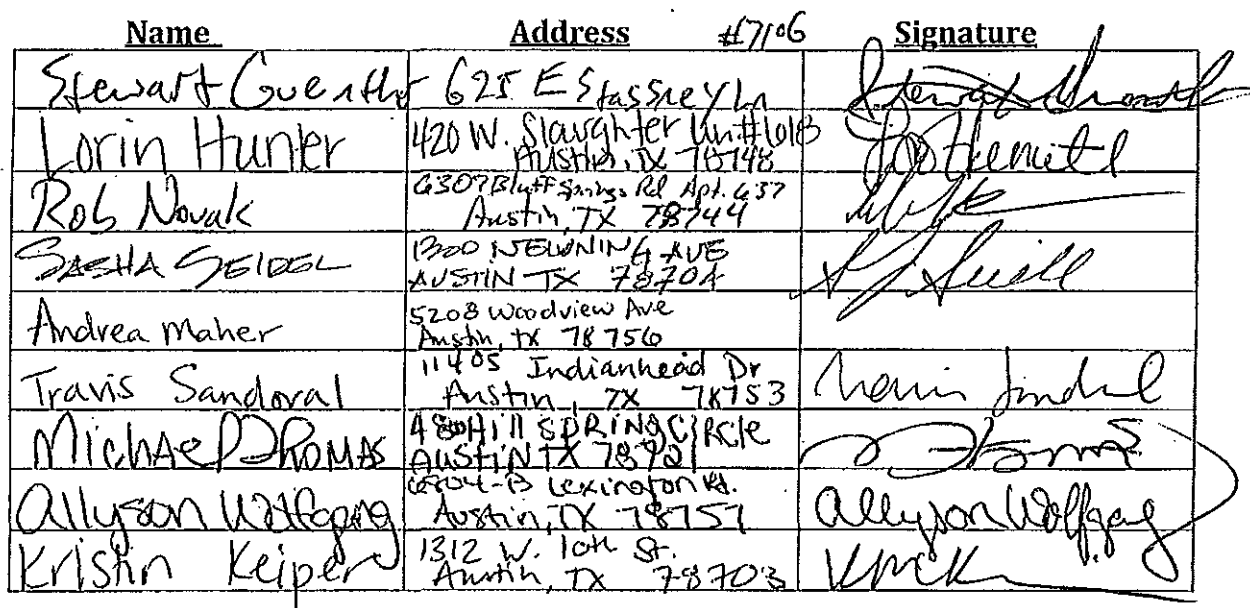 Name Address #7106 Signature
Stewart Guenther 625 E Stassney Ln
Lorin Hunter 420 W. Slaughter Unit #1018
Austin, TX 78748
Rob Novak 6307 Bluff Springs Rd Apt. 637
Austin, TX 78744
SASHA SEIDEL 1300 NEWNING AVE
AUSTIN TX 78704
Andrea Maher 5208 Woodview Ave
Austin, tx 78756
Travis Sandoval 11405 Indianhead Dr
Austin, TX 78753
Michael Thomas Hill SPRING CIRCLE
AUSTIN TX
Allyson Wolfgang Lexington Rd. Allyson Wolfgang
Austin, TX 78757
Kristin Keiper 1312 W. 10th St.
Austin, TX 78703